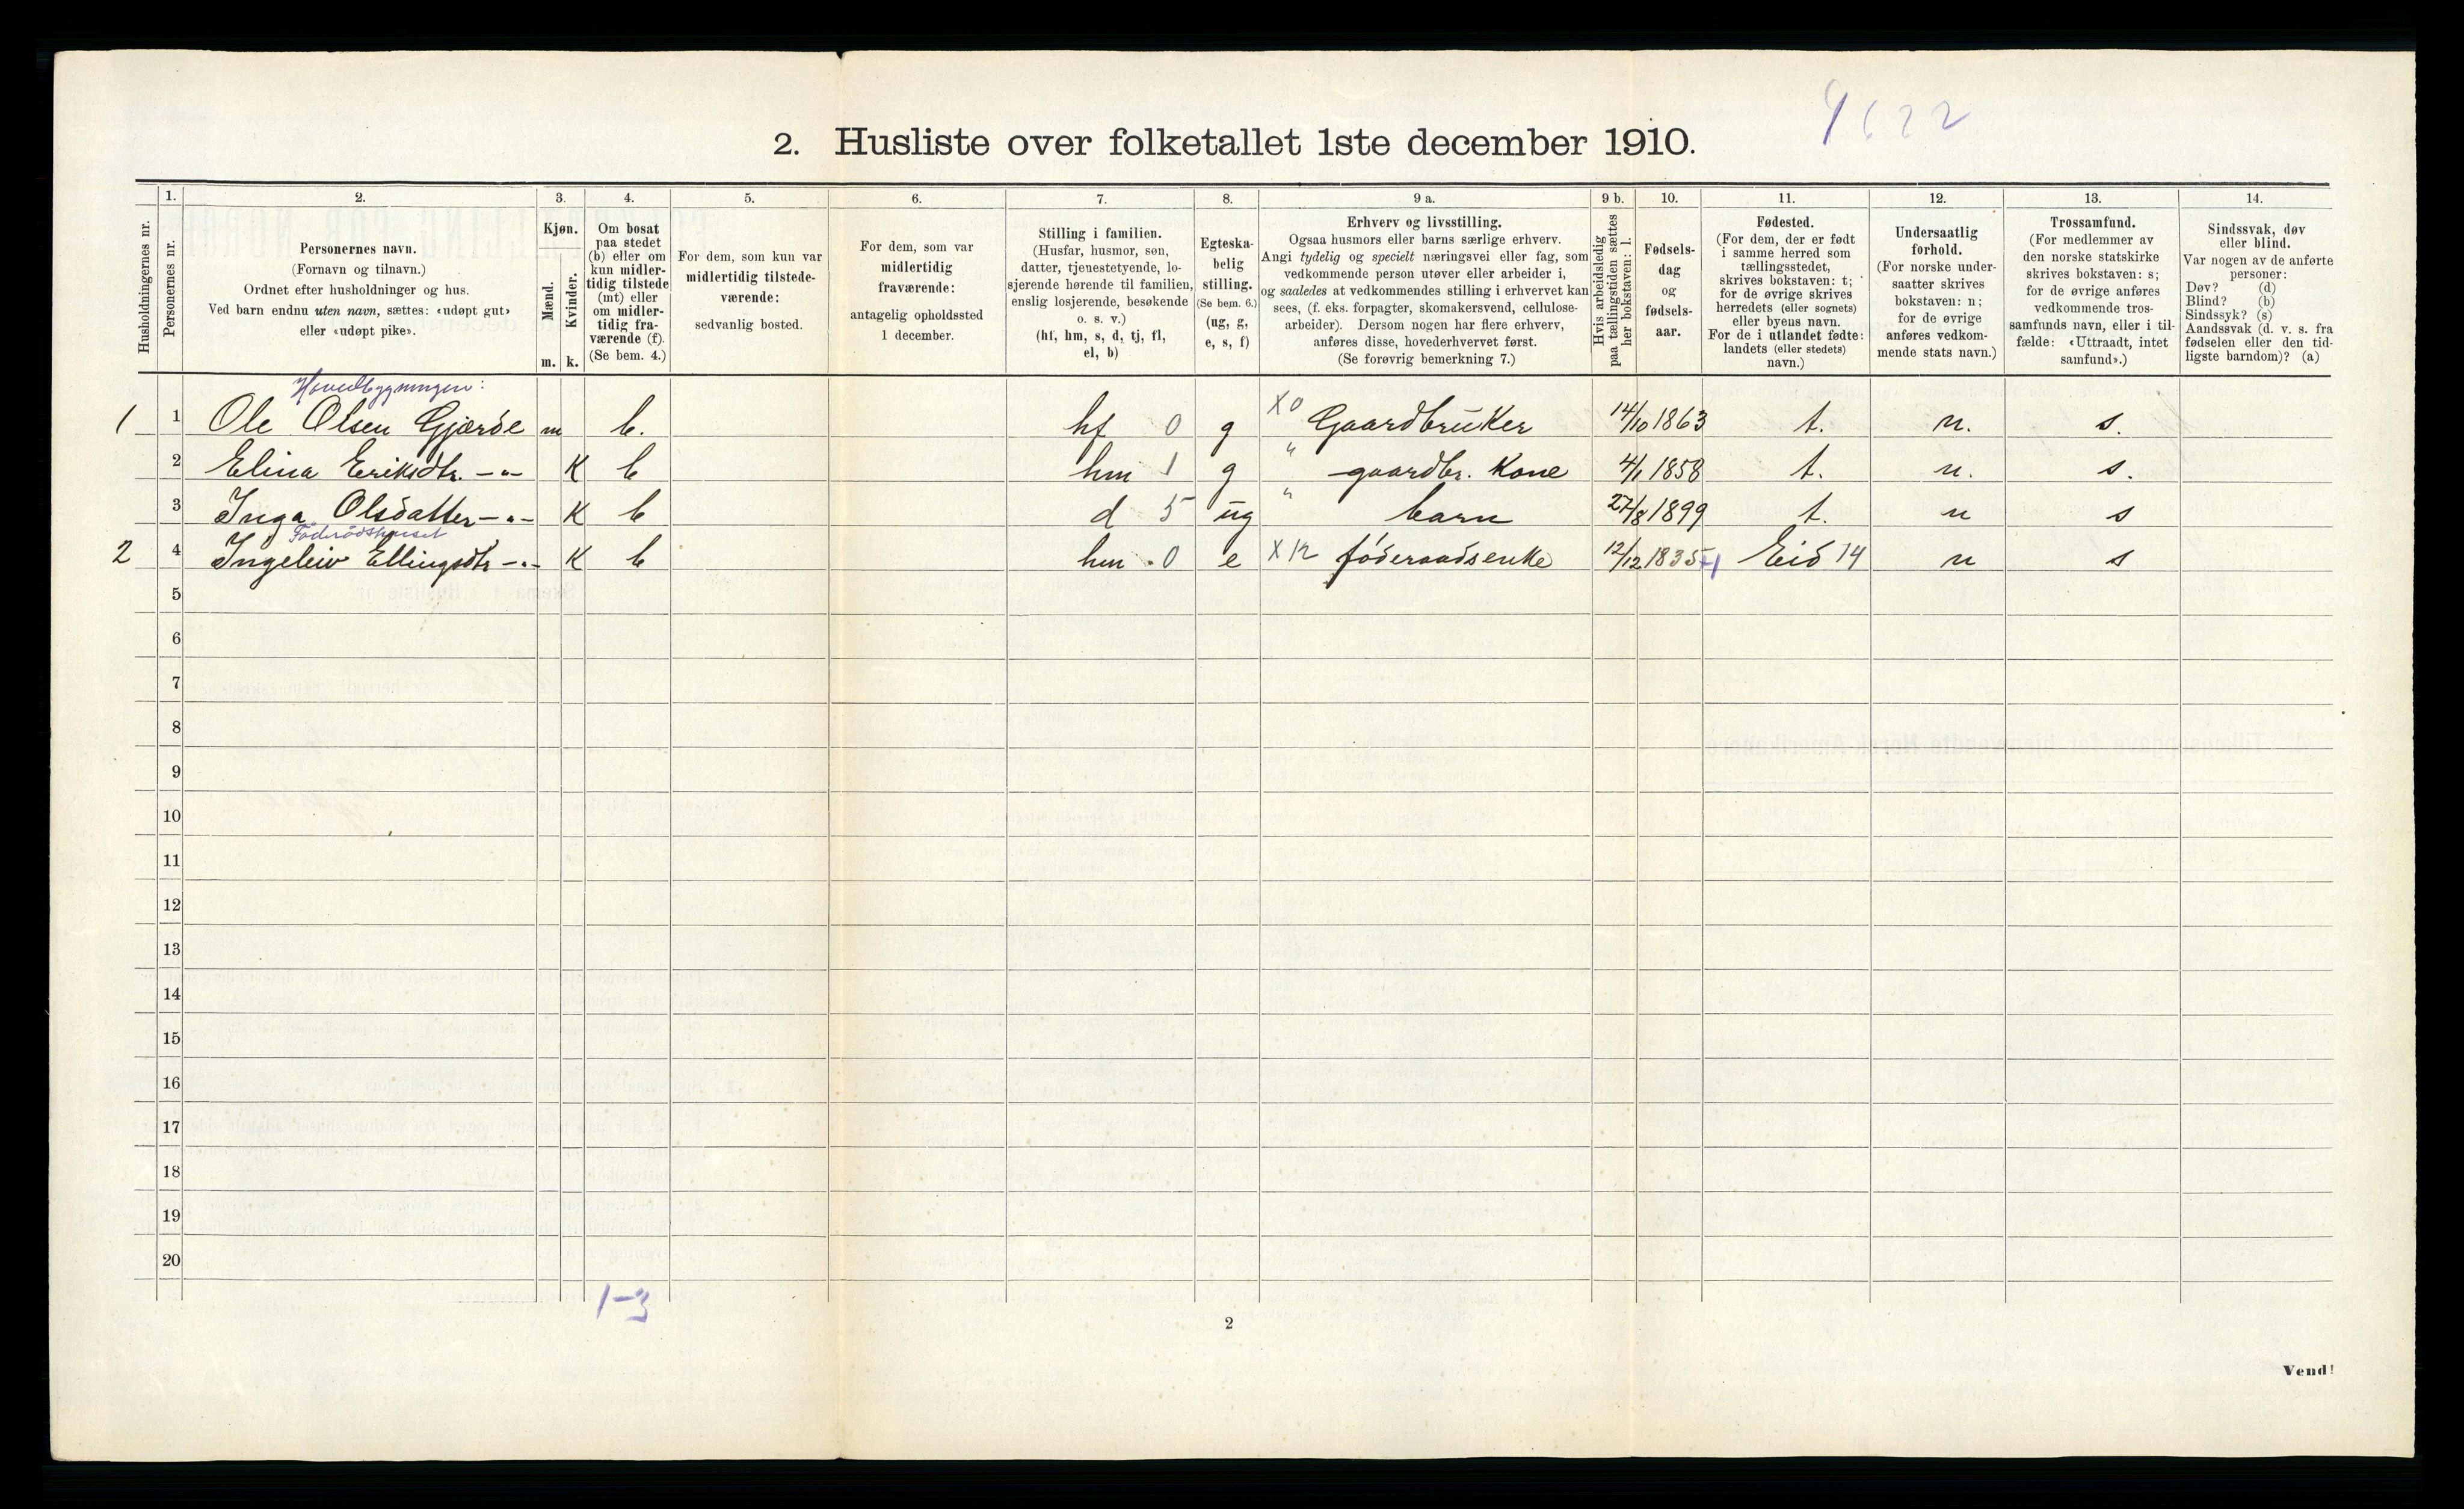 2. Husliste over folketallet 1ste december 1910.
Husholdningernes nr.
1.
Personernes nr.
2.
Personernes navn.
(Fornavn og tilnavn.)
Ordnet efter husholdninger og hus.
Ved barn endnu uten navn, sættes: «udøpt gut»
eller «udøpt pike».
3.
Kjøn.
Mænd.
Kvinder.
m. k.
4.
Om bosat
paa stedet
(b) eller om
kun midler-
tidig tilstede
(mt) eller
om midler-
tidig fra-
værende (f).
(Se bem. 4.)
5.
For dem, som kun var
midlertidig tilstede-
værende:
sedvanlig bosted.
6.
For dem, som var
midlertidig
fraværende:
antagelig opholdssted
1 december.
7.
Stilling i familien.
(Husfar, husmor, søn,
datter, tjenestetyende, lo-
sjerende hørende til familien,
enslig losjerende, besøkende
o. s. v.)
(hf, hm, s, d, tj, fl,
el, b)
8.
Egteska-
belig
stilling.
(Se bem. 6.)
(ug, g,
e, s, f)
9 a.
Erhverv og livsstilling.
Ogsaa husmors eller barns særlige erhverv.
Angi tydelig og specielt næringsvei eller fag, som
vedkommende person utøver eller arbeider i,
og saaledes at vedkommendes stilling i erhvervet kan
sees, (f. eks. forpagter, skomakersvend, cellulose-
arbeider). Dersom nogen har flere erhverv,
anføres disse, hovederhvervet først.
(Se forøvrig bemerkning 7.)
9 b.
Hvis arbeidsledig
paa tællingstiden sættes
her bokstaven: l.
10.
Fødsels-
dag
og
fødsels-
aar.
11.
Fødested.
(For dem, der er født
i samme herred som
tællingsstedet,
skrives bokstaven: t;
for de øvrige skrives
herredets (eller sognets)
eller byens navn.
For de i utlandet fødte:
landets (eller stedets)
navn.)
12.
Undersaatlig
forhold.
(For norske under-
saatter skrives
bokstaven: n;
for de øvrige
anføres vedkom-
mende stats navn.)
13.
Trossamfund.
(For medlemmer av
den norske statskirke
skrives bokstaven: s;
for de øvrige anføres
vedkommende tros-
samfunds navn, eller i til-
fælde: «Uttraadt, intet
samfund».)
14.
Sindssvak, døv
eller blind.
Var nogen av de anførte
personer:
Døv? (d)
Blind? (b)
Sindssyk? (s)
Aandssvak (d. v. s. fra
fødselen eller den tid-
ligste barndom)? (a)
Hovedbygningen:
1 1 Ole Olsen Gjærde m b. hf 0 g X0 Gaardbruker 14/10 1863 t. n. s.
2 Elina Eriksdtr. -"- K b hm 1 g " gaardbr. Kone 4/1 1858 t. n. s.
3 Inga Olsdatter -"- K b d 5 ug " barn 27/8 1899 t. n s
Föderådshuset
2 4 Ingeleiv Ellingsdtr -"- K b hm 0 e X 12 føderaadsenke 12/12 1835 Eid 14 n s
5
6
7
8
9
10
11
12
13
14
15
16
17
18
19
20
1-3
2
Vend!